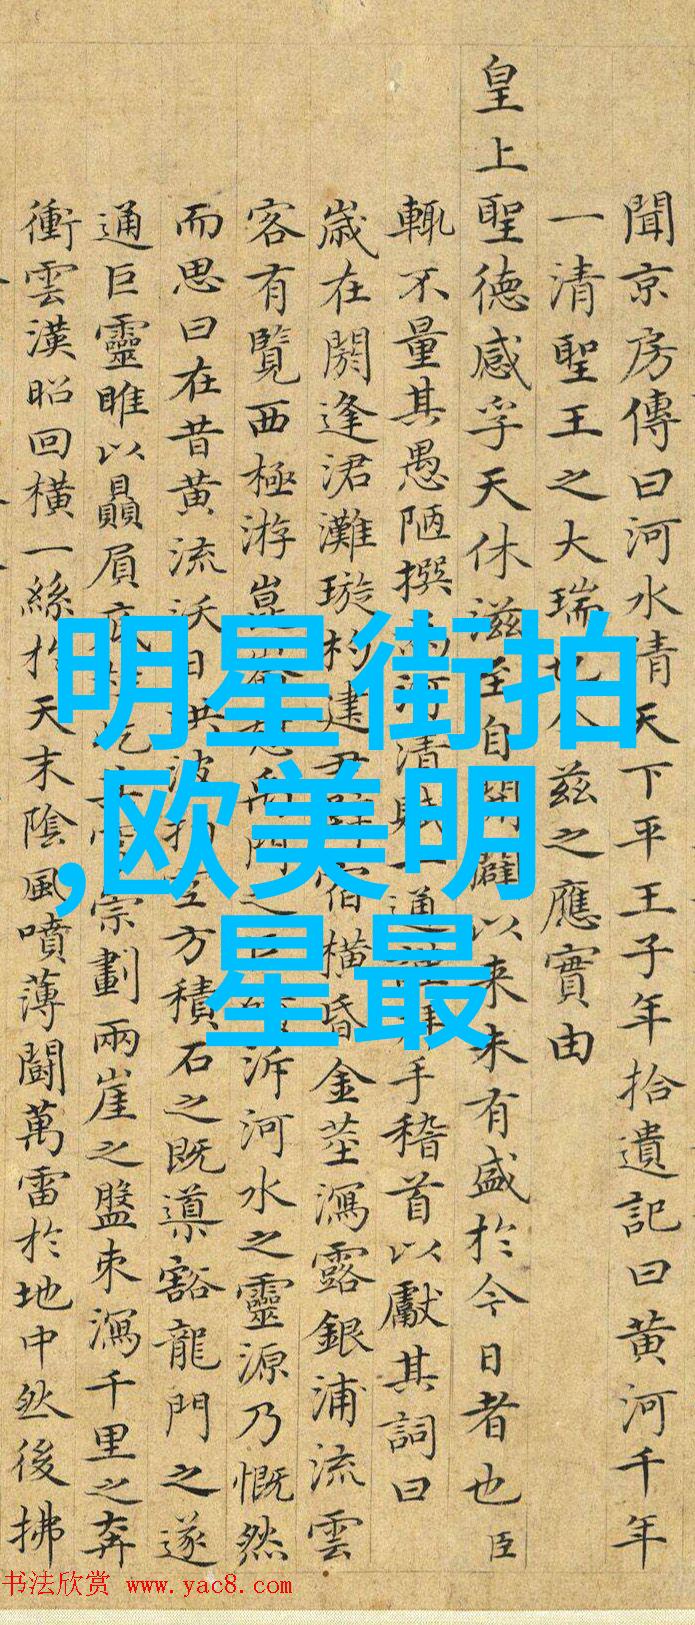 聞京房傳曰河水清天下平王子年拾遺記曰黃河千年
一清聖王之大瑞也人茲之應實由
皇上聖德感孚天休滋至自開闢以来未有盛於今日者也臣
輒不量其愚陋撰河清賦一通拜手稽首以獻其詞曰
歳在閼逢涒灘璇杓建宿橫昏金莖瀉露銀浦流雲
客有覽西極游之泝河水之靈源乃慨然
而思曰在昔黃流沃日洪波方積石之既導豁龍門之遂
通巨靈睢以贔屓宗劃兩崖之盤束瀉千里之奔
衝雲漢昭回橫一絲於天末陰風噴薄鬪萬雷於地中然後拂
明星街拍
,欧美明
星最
书法欣赏 www.yac8.com